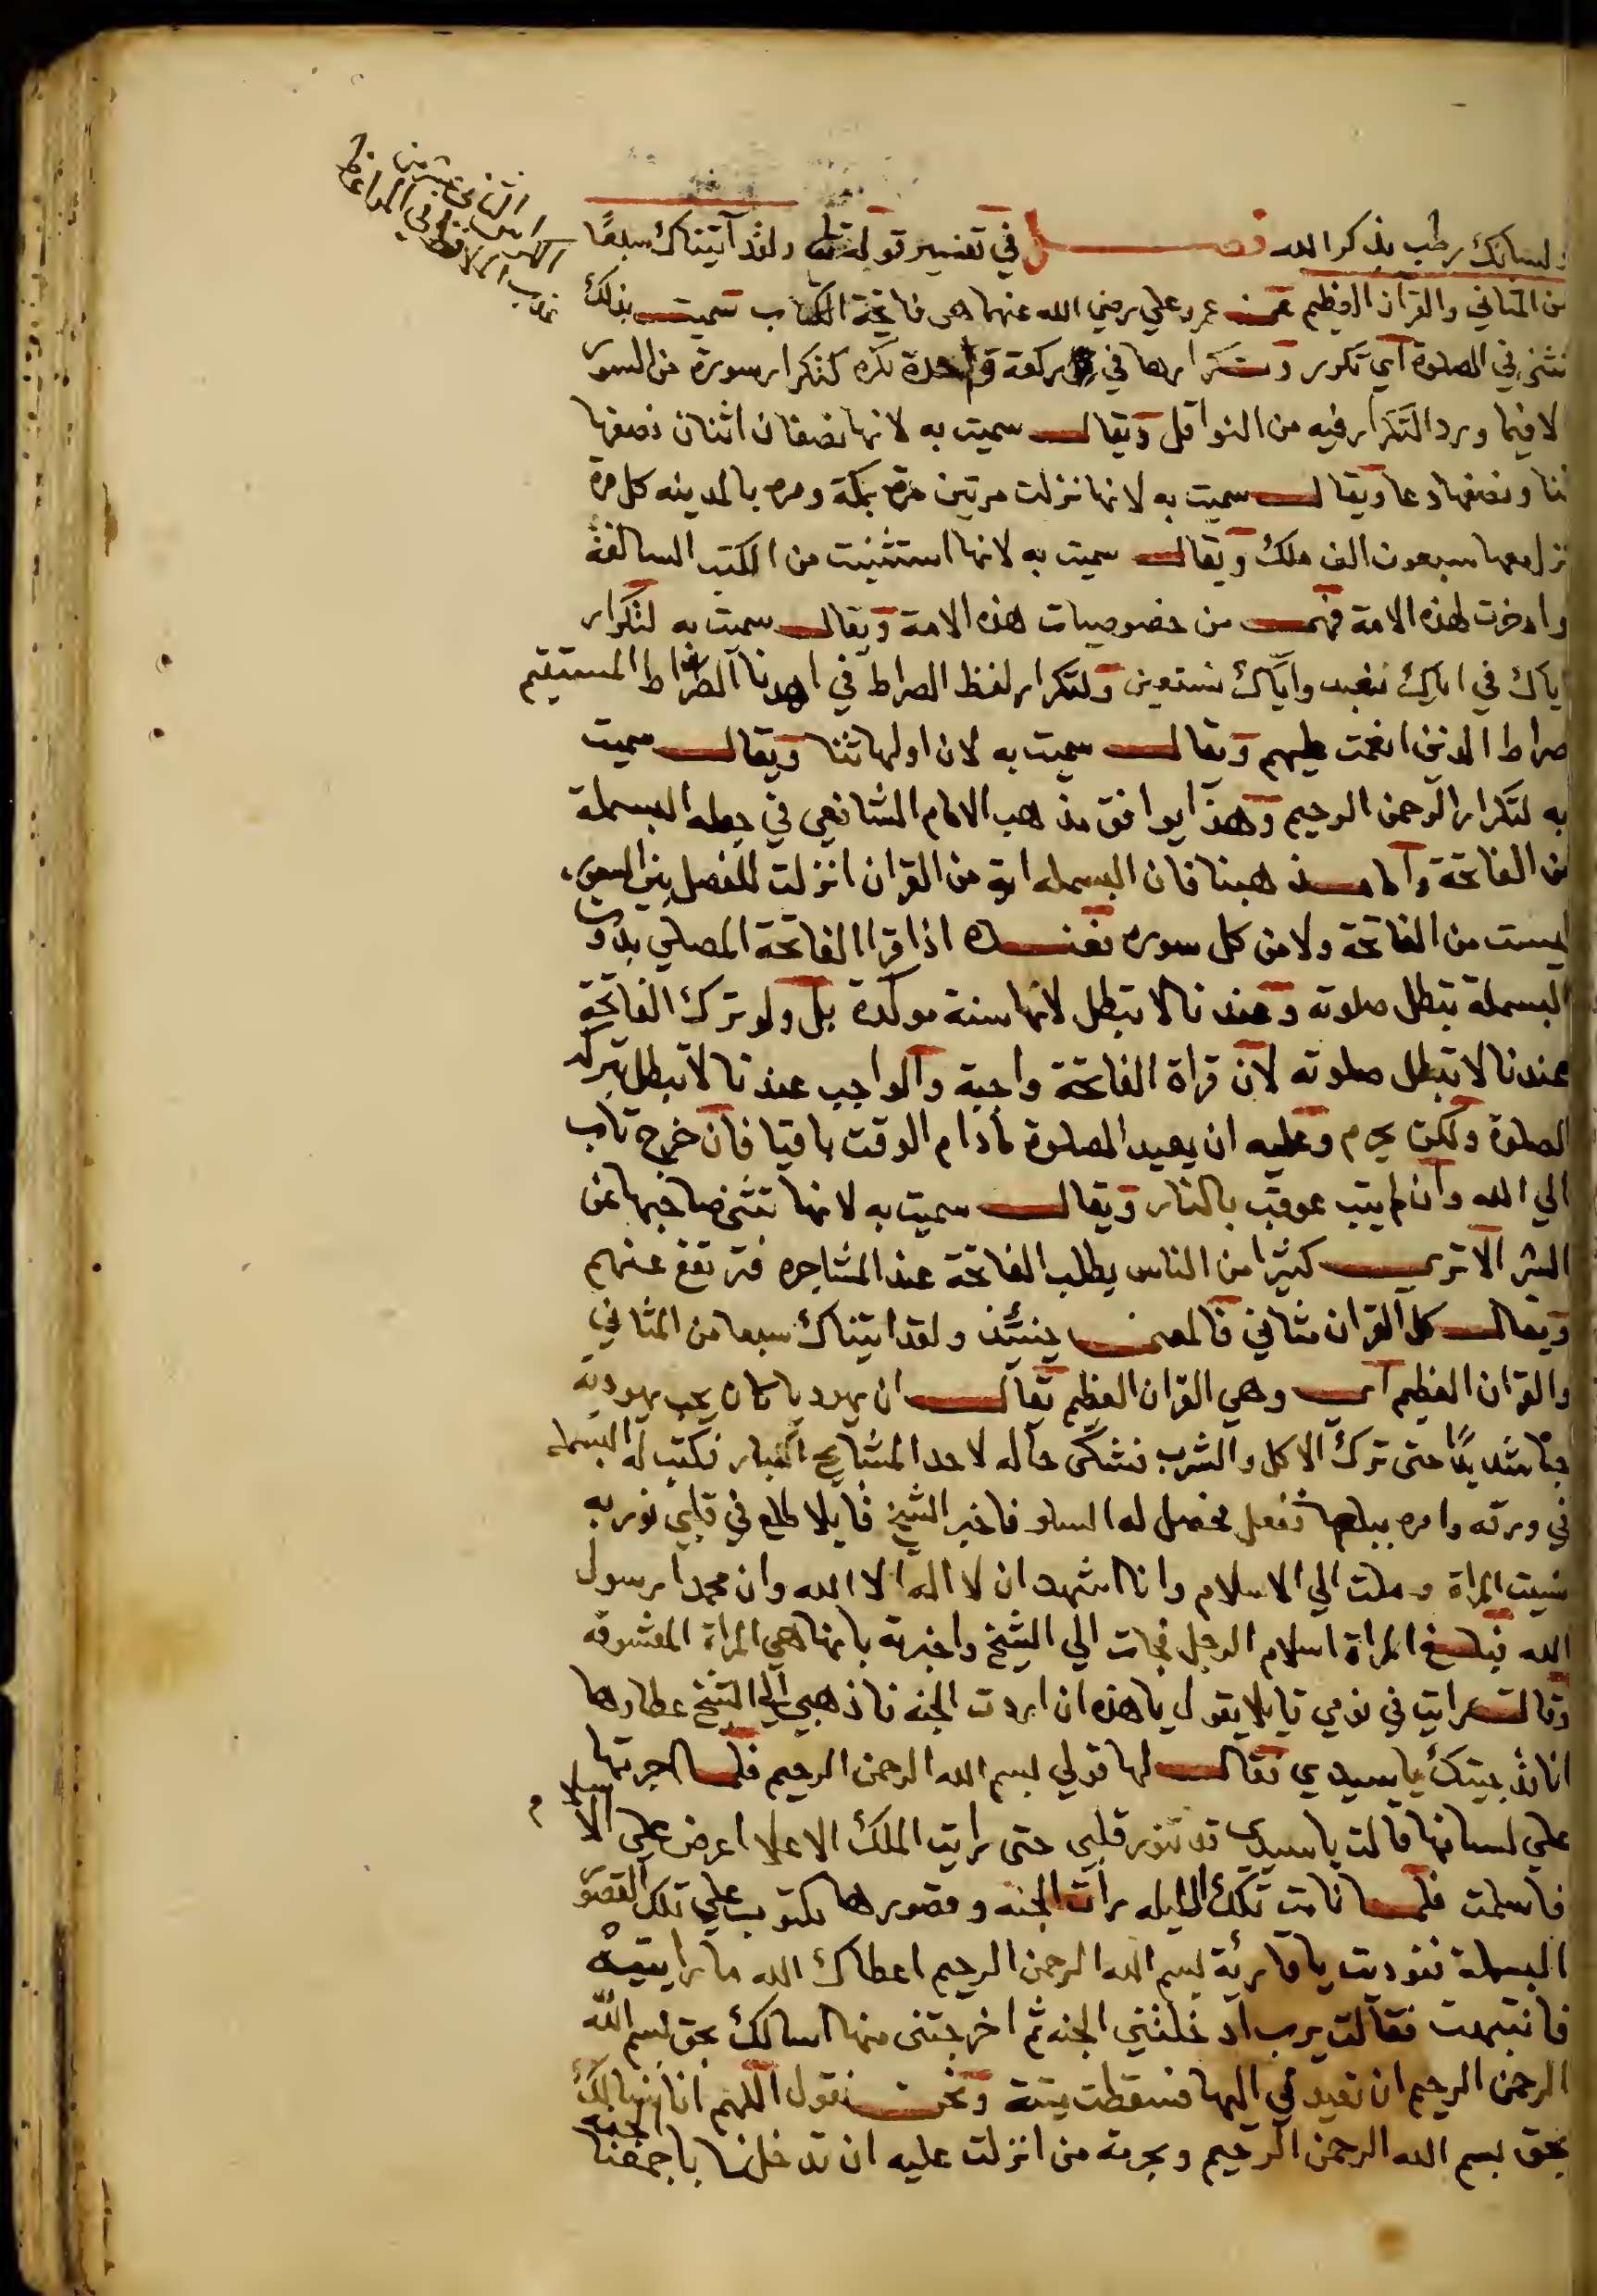 ولسانك رطب بذكر الله فصل في تفسير قوله تعالى ولقد آتيناك سبعًا
من المثاني والقران العظيم عن عمر وعلي رضي الله عنهما هي فاتحة الكتاب سميت بذلك
تثنى في الصلوة اي تكرر وتكرارها في ركعة واحدة تكره كتكرار سورة من السور
الا فيما ورد التكرار فيه من النوافل ويقال سميت به لانها نصفان اثنان نصفها
ثنا ونصفها دعا ويقال سميت به لانها نزلت مرتين مرة بمكة ومرة بالمدينه كل مرة
نزل معها سبعون الف ملك ويقال سميت به لانها استثنيت من الكتب السالفة
وادخرت لهذه الامة فهي من خصوصيات هذه الامة ويقال سميت به لتكرار
اياك في اياك نعبد واياك نستعين ولتكرار لفظ الصراط في اهدنا الصراط المستقيم
صراط الذين انعمت عليهم ويقال سميت به لان اولها ثنا ويقال سميت
به لتكرار الرحمن الرحيم وهذا يوافق مذهب الامام الشافعي في جعله البسملة
من الفاتحة واما مذهبنا فان البسمله اية من القران انزلت للفصل بين السور
ليست من الفاتحة ولا من كل سوره فعنده اذا قرا الفاتحة المصلي بدون
البسملة تبطل صلوته وعندنا لا تبطل لانها سنة موكدة بل ولو ترك الفاتحة
عندنا لا تبطل صلوته لان قراة الفاتحة واجبة والواجب عندنا لا تبطل بتركه
الصلوة ولكن يحرم وعليه ان يعيد الصلوة مادام الوقت باقيا فان خرج تاب
الي الله وان لم يتب عوقب بالنار ويقال سميت به لانها تثني صاحبها عن
الشر الا تري كثيرا من الناس يطلب الفاتحة عند المشاجره فترتفع عنهم
ويقال كل القران مثاني فالمعنى حينئذ ولقد اتيناك سبعا من المثاني
والقران العظيم اي وهي القران العظيم يقال ان يهوديا كان يحب يهودية
حبا شديدًا حتى ترك الاكل والشرب فشكى حاله لاحد المشايخ الكبار فكتب له البسمله
في ورقه وامره ببلعها ففعل فحصل له السلو فاخبر الشيخ قايلا طلع في قلبي نور به
نسيت المراة وملت الي الاسلام وانا اشهد ان لا اله الا الله وان محمدا رسول
الله فبلغ المراة اسلام الرجل فجات الي الشيخ واخبرته بانها هي المراة المعشوقه
وقالت رايت في نومي قايلا يقول يا هذه ان اردت الجنه فاذهبي الي الشيخ عطا وها
انا قد جيتك يا سيدي فقال لها قولي بسم الله الرحمن الرحيم فلما اجرتها
علي لسانها قالت يا سيدي قد تنور قلبي حتى رايت الملك الاعلا اعرض علي الاسلام
فاسلمت فلما نامت تلك الليله رات الجنه وقصورها مكتوب علي تلك القصور
البسملة فنوديت يا قارئة بسم الله الرحمن الرحيم اعطاك الله ما رايتيه
فانتبهت فقالت يرب ادخلتني الجنه ثم اخرجتني منها اسالك بحق بسم الله
الرحمن الرحيم ان تعيدني اليها فسقطت ميتة ونحن نقول اللهم انا نسالك
بحق بسم الله الرحمن الرحيم وبحرمة من انزلت عليه ان تدخلنا باجمعنا الجنه